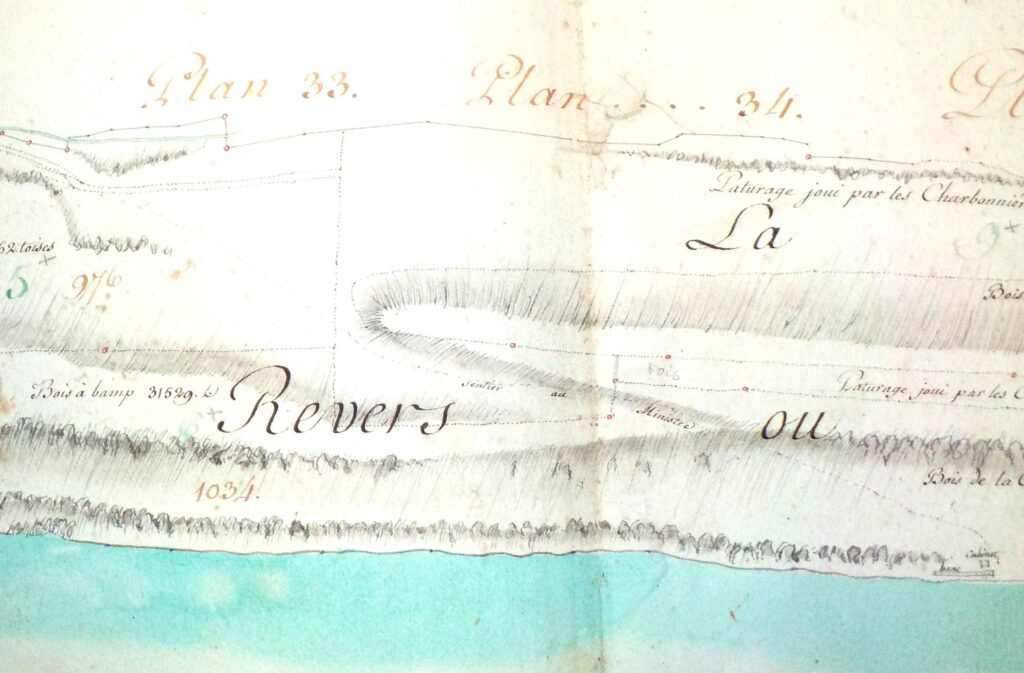 Plan 33.
Plan . . . . 34.
Pl
Paturage joui par les Charbonnier
La
62. toises
9
5
976
Bois
bois
Sentier au Ministre
Bois à bamp 31529.
Paturage, joui par les C
Revers
ou
6
Bois de la C
1034.
Cabinet
banc